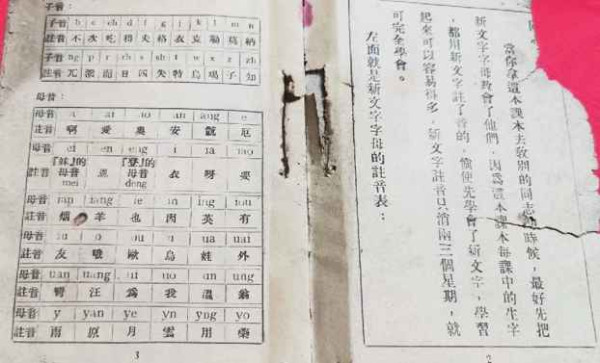 當你拿這本課本去敎別的同志 時候，最好先把
新文字字母敎會了他們，因爲這本課本每課中的生字
，都用新文字註了音的，倘使先學會了新文字，學習
起來可以容易得多，新文字註音只消兩三個星期，就
可完全學會。
左面就是新文字字母的註音表：
2
子音：
子音 b c ch d f g j k l m n
註音 不 次 吃 得 夫 格 衣 克 勒 莫 納
子音 ng p r rh s sh t w x z zh
註音 兀 潑 而 日 四 失 特 烏 喝 子 知
母音：
母音 a ai ao an ang e
註音 啊 愛 奧 安 骯 厄
母音 ei en eng i ia iao
註音 『妹』的母音mei 恩 『登』的母音deng 衣 呀 要
母音 ian iang ie in ing iou
註音 煙 羊 也 因 英 有
母音 iu o ou u ua uai
註音 友 哦 歐 烏 娃 外
母音 uan uang ui uo un ung
註音 彎 汪 爲 我 溫 翁
母音 y yan ye yn yng yo
註音 雨 原 月 雲 用 藥
3